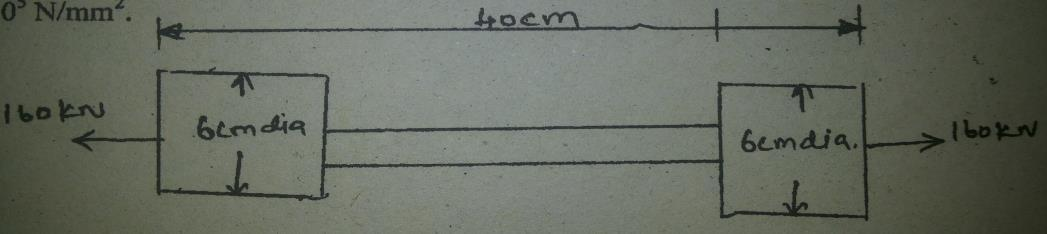 0⁵ N/mm².
40cm
160 kN
6cm dia
6cm dia.
160 kN